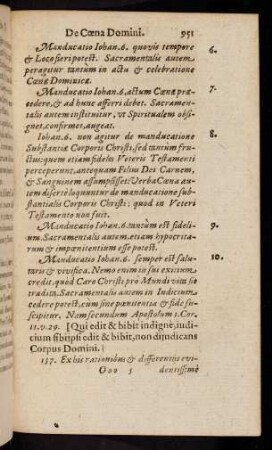 De Cœna Domini. 951
Manducatio Iohan. 6. quovis tempore 6.
& Loco fieri potest. Sacramentalis autem,
peragitur tantùm in actu & celebratione
Cœnæ Dominicæ.
Manducatio Iohan. 6. actum Cœnæ præ- 7.
cedere, & ad hunc afferri debet. Sacramen-
talis autem instituitur, ut Spiritualem obsi-
gnet, confirmet, augeat.
Iohan. 6. non agitur de manducatione 8.
Substantiæ Corporis Christi, sed tantùm fru-
ctus: quem etiam fideles Veteris Testamenti
perceperunt, antequam Filius Dei Carnem,
& Sanguinem assumpsisset: Verba Cœnæ au-
tem disertè loquuntur de manducatione sub-
stantialis Corporis Christi: quod in Veteri
Testamento non fuit.
Manducatio Iohan. 6. tantùm est fideli- 9.
um, Sacramentalis autem, etiam hypocrita-
rum & impœnitentium esse potest.
Manducatio Iohan. 6. semper est salu- 10.
taris & vivifica. Nemo enim in sui exitium
credit, quod Caro Christi pro Mundi vita sit
tradita. Sacramentalis autem in Iudicium
cedere potest, cùm sine pœnitentia & fide su-
scipitur. Nam secundum Apostolum 1. Cor.
11. v. 29. [Qui edit & bibit indignè, iudi-
cium sibi ipsi edit & bibit, non dijudicans
Corpus Domini.]
137. Ex his rationibus & differentijs evi-
Ooo 5 dentissimè